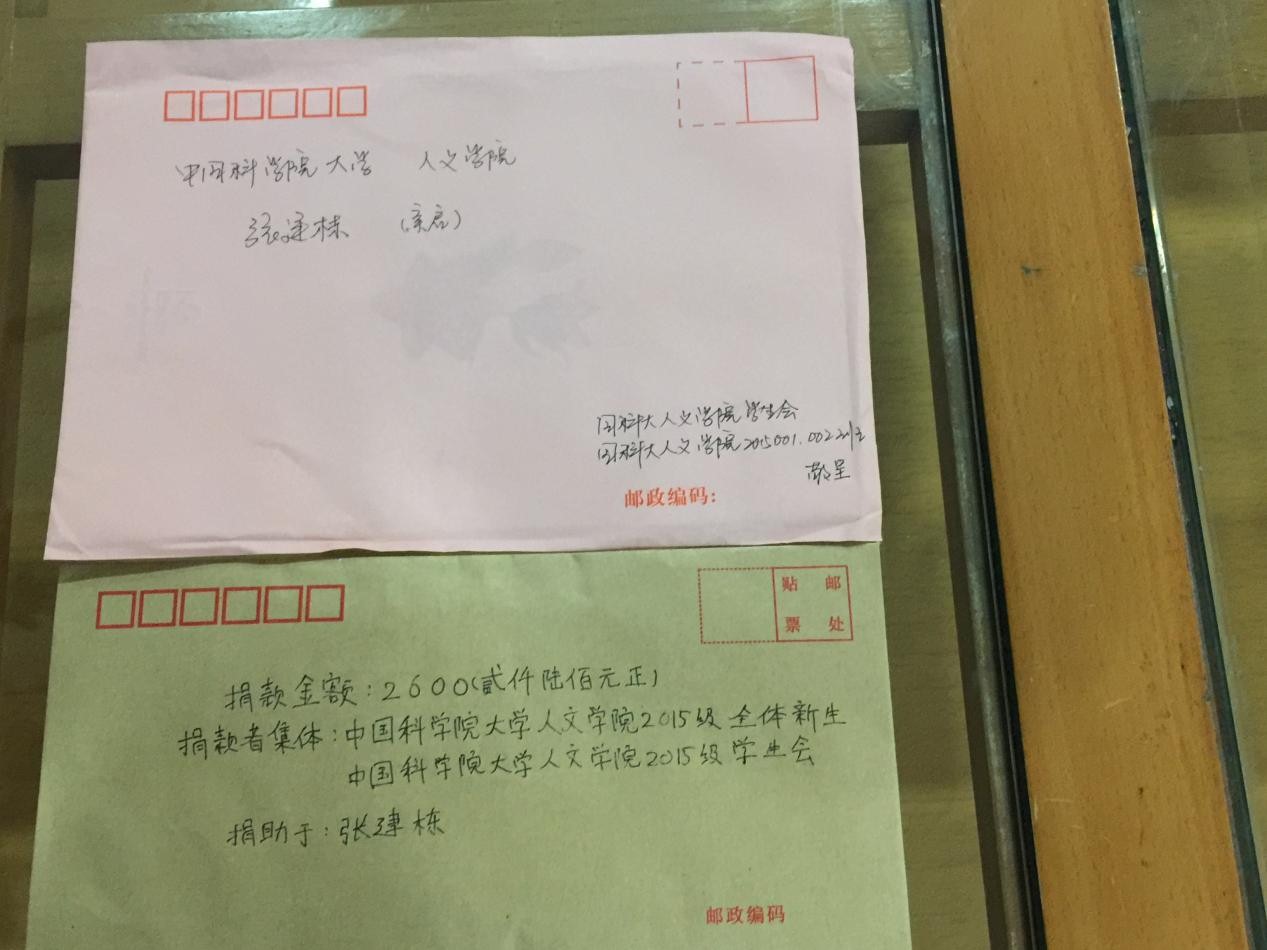 中国科学院大学 人文学院
张建栋 (亲启)
国科大人文学院学生会
国科大人文学院2015001.002
敬呈
邮政编码:
贴 邮
票 处
捐款金额:2600(贰仟陆佰元正)
捐款者集体:中国科学院大学人文学院2015级全体新生
中国科学院大学人文学院2015级学生会
捐助于:张建栋
邮政编码